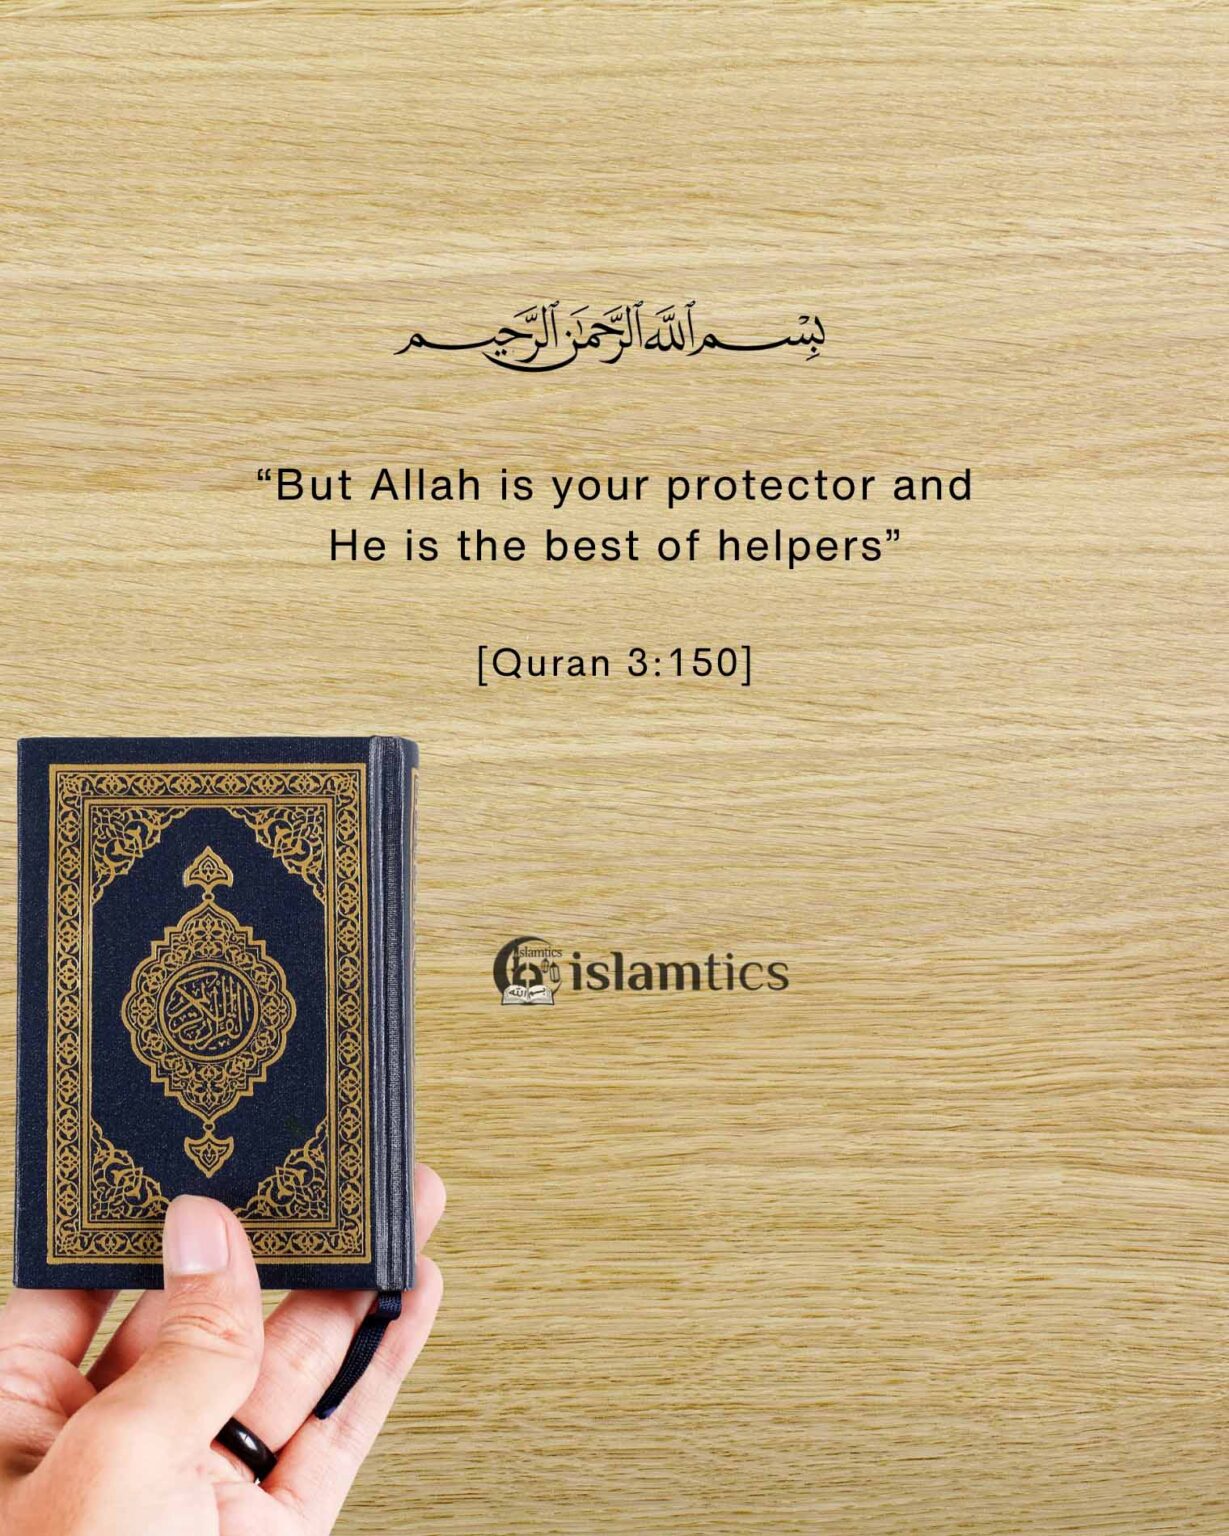 بِسْمِ ٱللَّهِ ٱلرَّحْمَٰنِ ٱلرَّحِيمِ
“But Allah is your protector and
He is the best of helpers”
[Quran 3:150]
القرآن الكريم
islamtics
بسم الله
islamtics